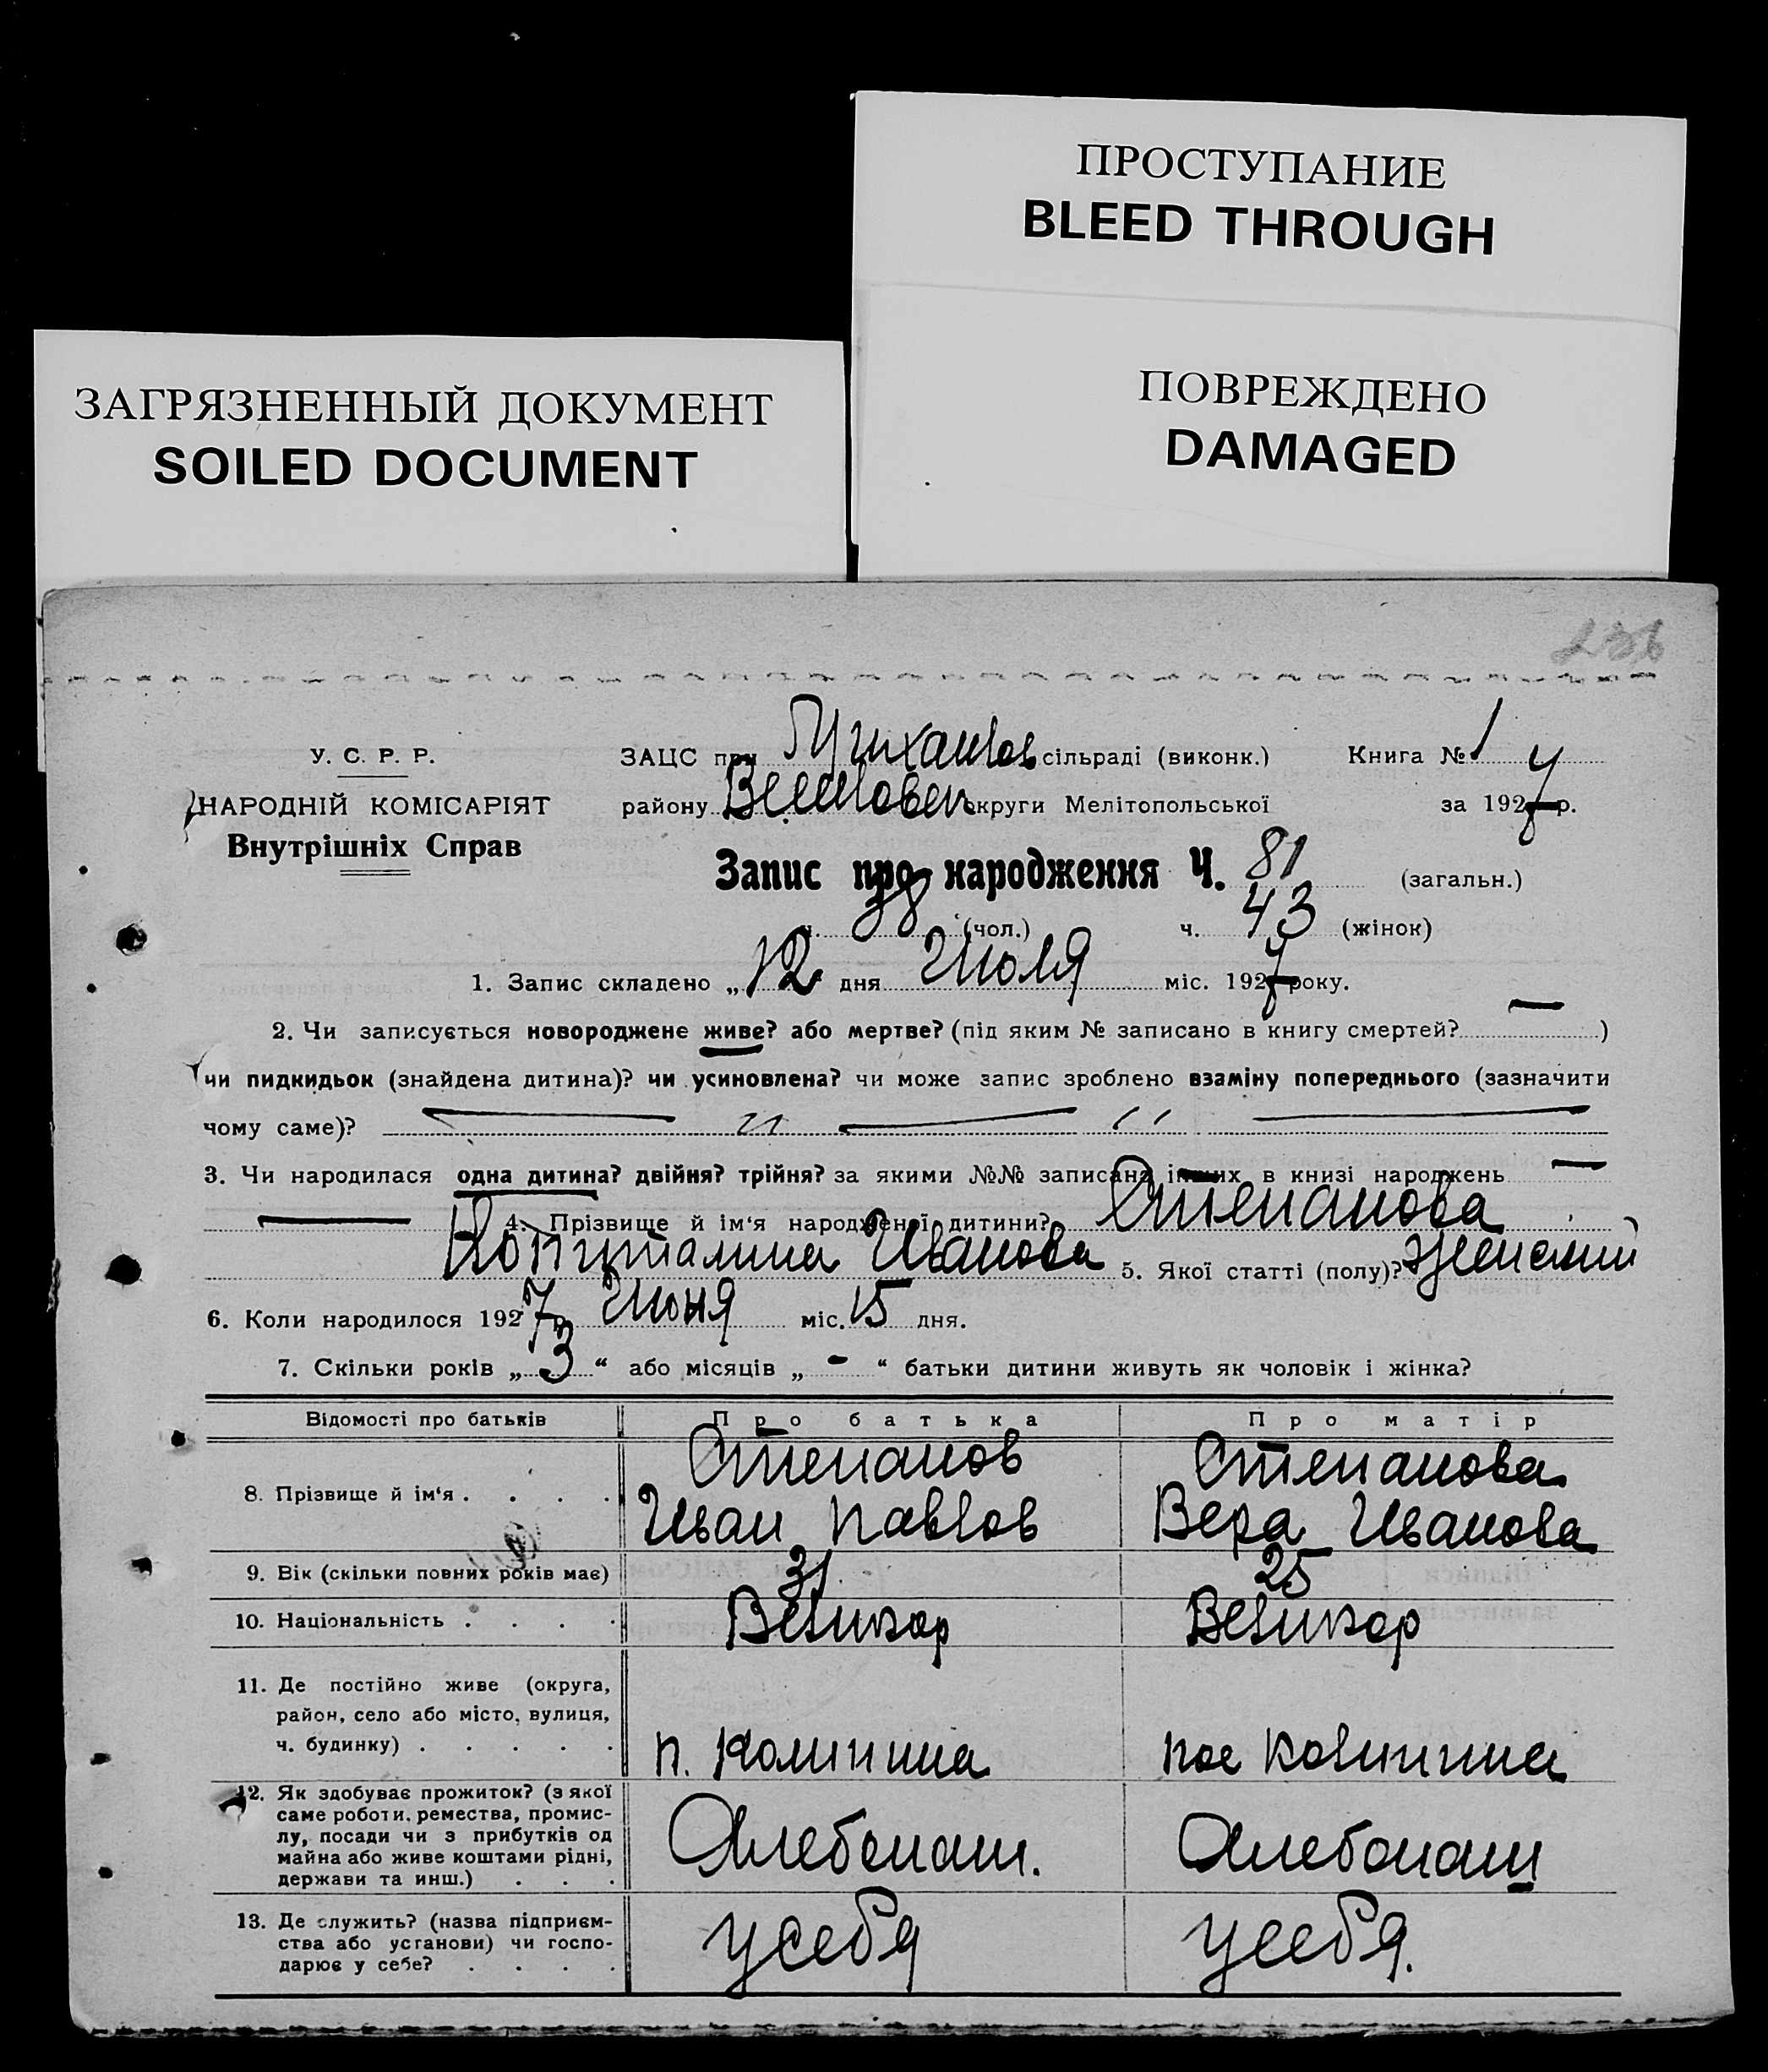 ПРОСТУПАНИЕ
BLEED THROUGH
ЗАГРЯЗНЕННЫЙ ДОКУМЕНТ
SOILED DOCUMENT
ПОВРЕЖДЕНО
DAMAGED
236
У. С. Р. Р.
ЗАЦС при сільраді (виконк.) Книга № 1
НАРОДНІЙ КОМІСАРІЯТ
району округи Мелітопольської за 1927 р.
Внутрішніх Справ
Запис про народження Ч. 81 (загальн.)
ч. 38 (чол.) ч. 43 (жінок)
1. Запис складено „12 дня Июля міс. 1927 року.
2. Чи записується новороджене живе? або мертве? (під яким № записано в книгу смертей? — )
чи пидкидьок (знайдена дитина)? чи усиновлена? чи може запис зроблено взаміну попереднього (зазначити
чому саме)? — " — " —
3. Чи народилася одна дитина? двійня? трійня? за якими №№ записана інших в книзі народжень —
— 4. Прізвище й ім'я народженої дитини? Степанова
Капиталина Иванова 5. Якої статті (полу)? Женский
6. Коли народилося 1927 р. Июня міс. 15 дня.
7. Скільки років „ 3 “ або місяців „ - “ батьки дитини живуть як чоловік і жінка?
Відомості про батьків Про батька Про матір
8. Прізвище й ім'я . . . . Степанов Степанова
Иван Павлов Вера Иванова
9. Вік (скільки повних років має) 31 25
10. Національність . . . . Великор Великор
11. Де постійно живе (округа,
район, село або місто, вулиця,
ч. будинку) . . . . . п. Калинина пос Калинина
12. Як здобуває прожиток? (з якої
саме роботи, ремества, промис-
лу, посади чи з прибутків од
майна або живе коштами рідні,
держави та инш.) . . . Хлебопаш. Хлебопаш
13. Де служить? (назва підприєм-
ства або установи) чи госпо-
дарює у себе? . . . . у себя у себя.